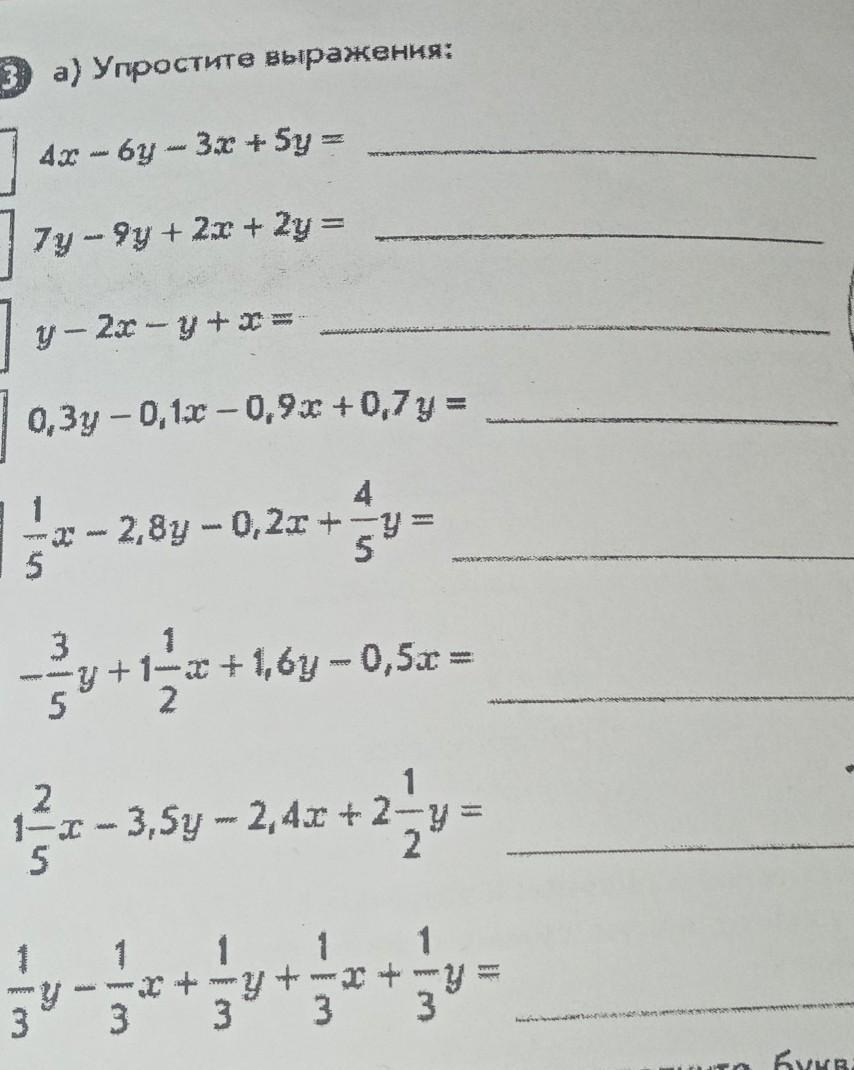 3 а) Упростите выражения:
4x − 6y − 3x + 5y =
7y − 9y + 2x + 2y =
y − 2x − y + x =
0,3y − 0,1x − 0,9x + 0,7y =
1/5 x − 2,8y − 0,2x + 4/5 y =
−3/5 y + 1 1/2 x + 1,6y − 0,5x =
1 2/5 x − 3,5y − 2,4x + 2 1/2 y =
1/3 y − 1/3 x + 1/3 y + 1/3 x + 1/3 y =